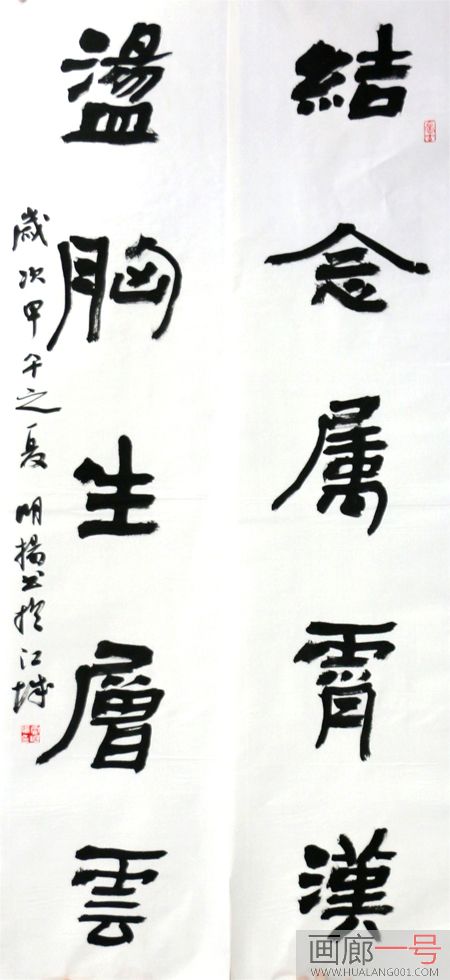 結念属霄漢
盪胸生層雲
歳次甲午之夏 明揚书於江城
画廊一号
WWW.HUALANG001.COM